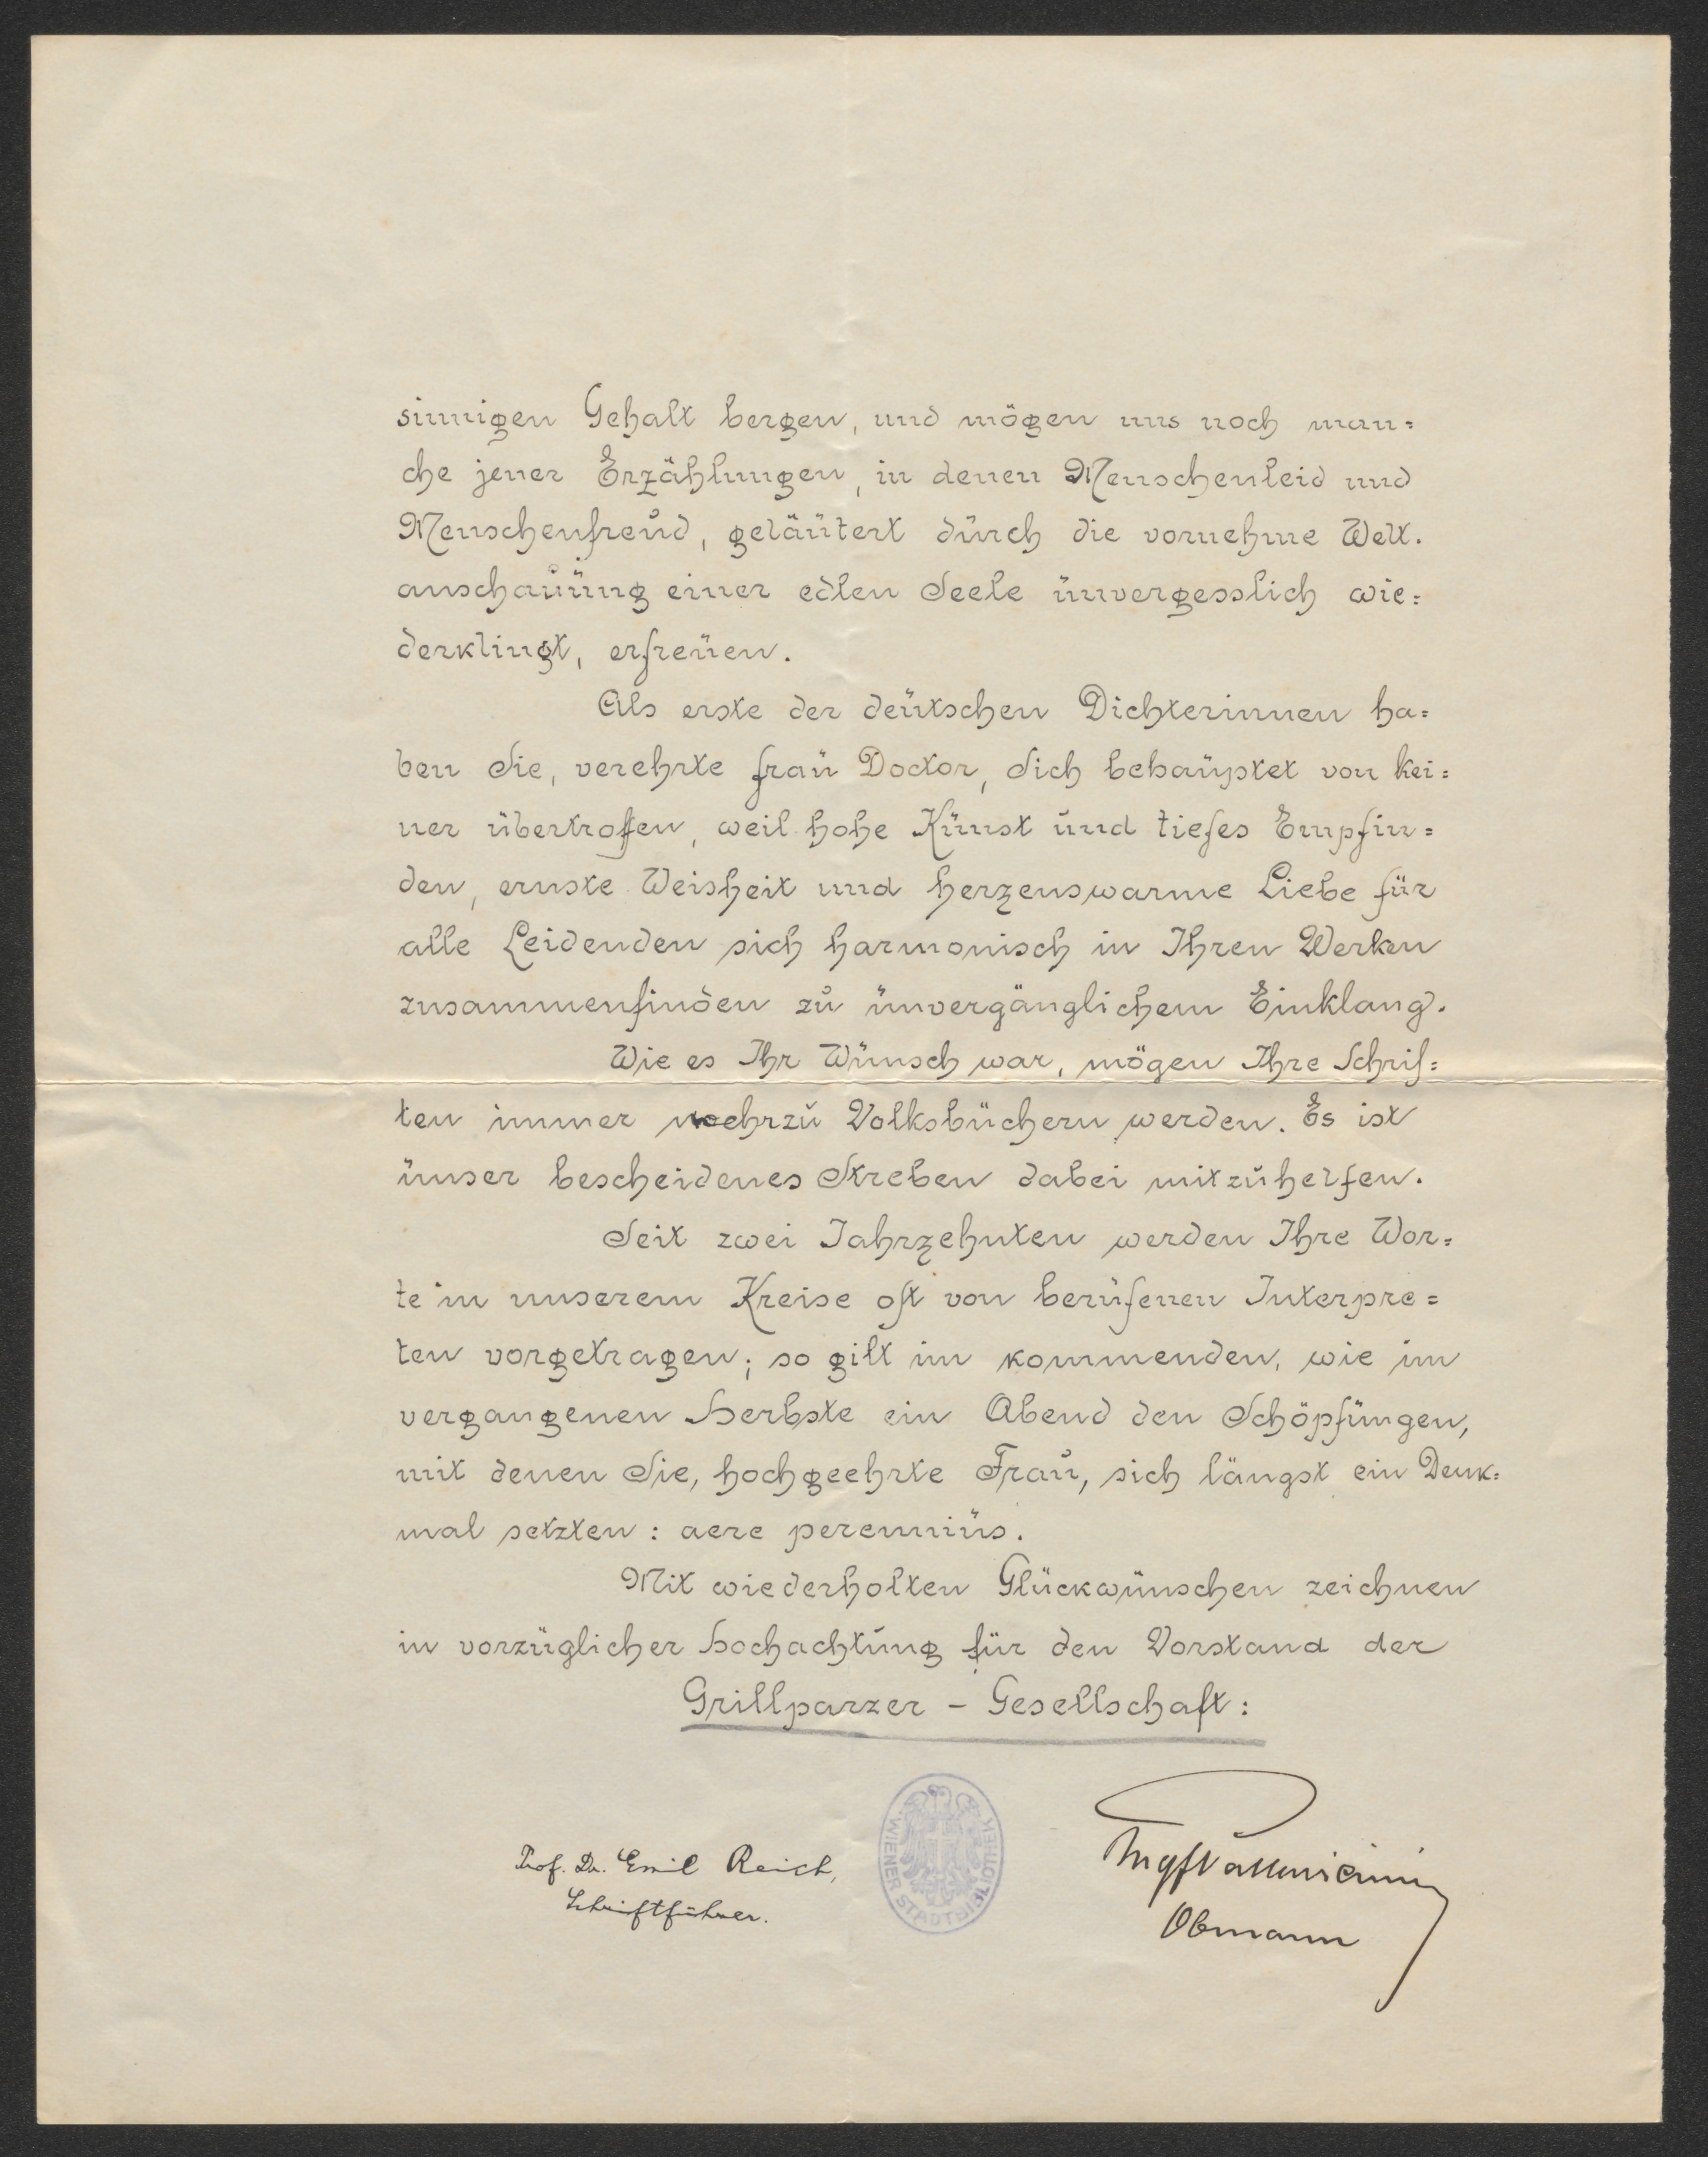 sinnigen Gehalt bergen, und mögen uns noch man=
che jener Erzählungen, in denen Menschenleid und
Menschenfreud, geläutert durch die vornehme Welt.
anschauung einer edlen Seele unvergesslich wie=
derklingt, erfreuen.
Als erste der deutschen Dichterinnen ha=
ben Sie, verehrte Frau Doctor, Sich behauptet von kei=
ner übertroffen, weil hohe Kunst und tiefes Empfin=
den, ernste Weisheit und herzenswarme Liebe für
alle Leidenden sich harmonisch in Ihren Werken
zusammenfinden zu unvergänglichem Einklang.
Wie es Ihr Wunsch war, mögen Ihre Schrif=
ten immer mehr zu Volksbüchern werden. Es ist
unser bescheidenes Streben dabei mitzuhelfen.
Seit zwei Jahrzehnten werden Ihre Wor=
te in unserem Kreise oft von berufenen Interpre=
ten vorgetragen; so gilt im kommenden, wie im
vergangenen Herbste ein Abend den Schöpfungen,
mit denen Sie, hochgeehrte Frau, sich längst ein Denk=
mal setzten: aere perennius.
Mit wiederholten Glückwünschen zeichnen
in vorzüglicher Hochachtung für den Vorstand der
Grillparzer - Gesellschaft:
Prof. Dr. Emil Reich,
Schriftführer.
WIENER STADTBIBLIOTHEK
Obmann